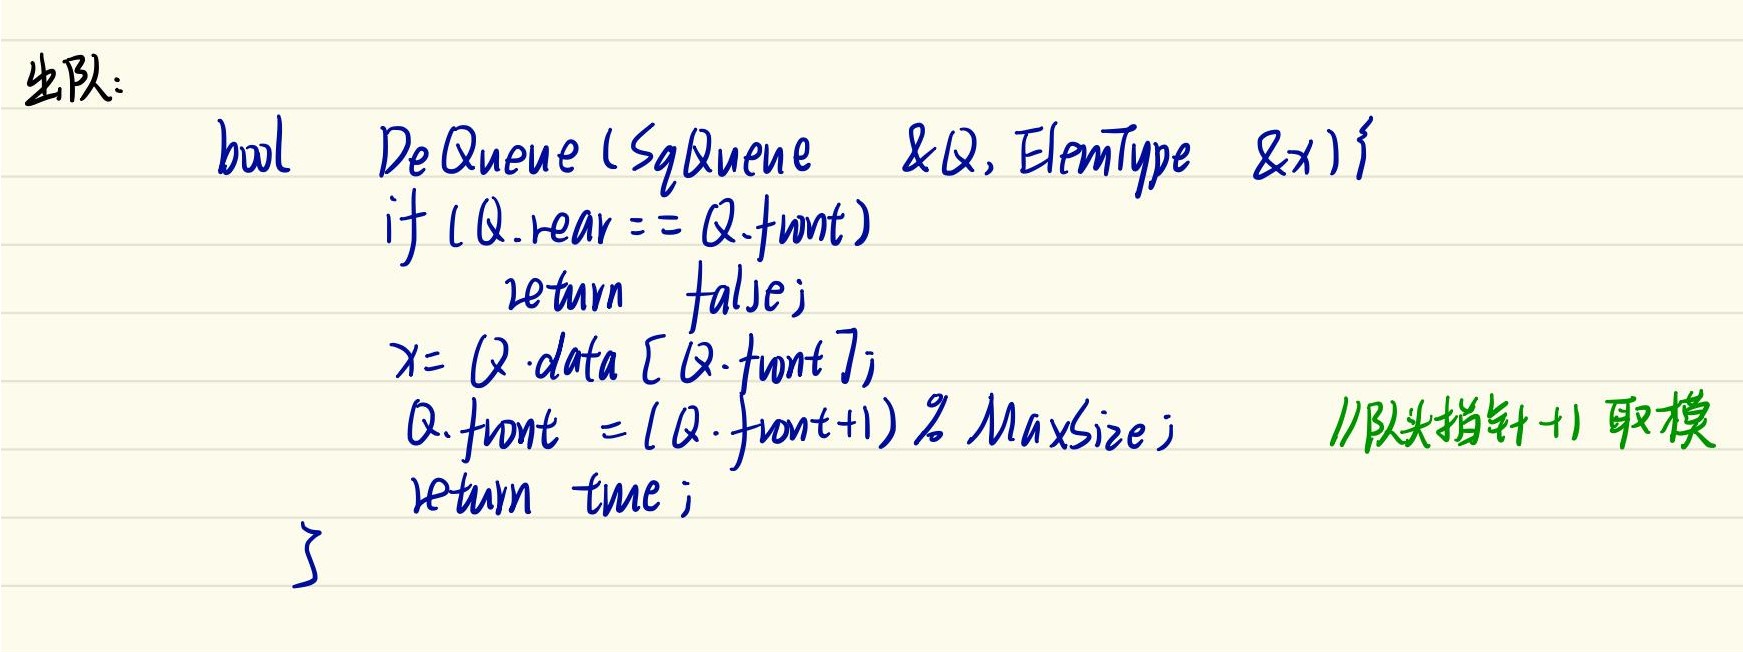 出队:
bool DeQueue (SqQueue &Q, ElemType &x) {
if (Q.rear == Q.front)
return false;
x = Q.data [Q.front];
Q.front = (Q.front+1) % MaxSize; //队头指针+1 取模
return true;
}